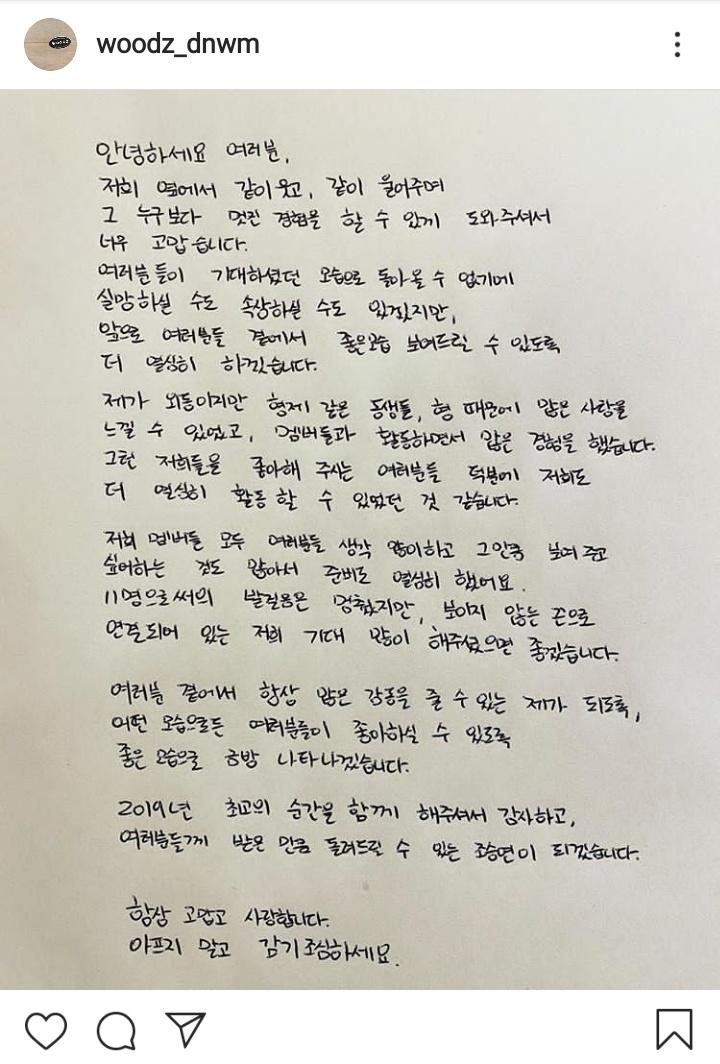 woodz_dnwm
안녕하세요 여러분,
저희 옆에서 같이 웃고, 같이 울어주며
그 누구보다 멋진 경험을 할 수 있게 도와주셔서
너무 고맙습니다.
여러분들이 기대하셨던 모습으로 돌아올 수 없기에
실망하실 수도 속상하실 수도 있겠지만,
앞으로 여러분들 곁에서 좋은모습 보여드릴 수 있도록
더 열심히 하겠습니다.
제가 외동이지만 형제 같은 동생들, 형 때문에 많은 사랑을
느낄 수 있었고, 멤버들과 활동하면서 많은 경험을 했습니다.
그런 저희들을 좋아해 주시는 여러분들 덕분에 저희도
더 열심히 활동 할 수 있었던 것 같습니다.
저희 멤버들 모두 여러분들 생각 많이하고 그만큼 보여 주고
싶어하는 것도 많아서 준비도 열심히 했어요.
11명으로써의 발걸음은 멈췄지만, 보이지 않는 끈으로
연결되어 있는 저희 기대 많이 해주셨으면 좋겠습니다.
여러분 곁에서 항상 많은 감동을 줄 수 있는 제가 되도록,
어떤 모습으로든 여러분들이 좋아하실 수 있도록
좋은 모습으로 금방 나타나겠습니다.
2019년 최고의 순간을 함께 해주셔서 감사하고,
여러분들께 받은 만큼 돌려드릴 수 있는 조승연이 되겠습니다.
항상 고맙고 사랑합니다.
아프지 말고 감기조심하세요.